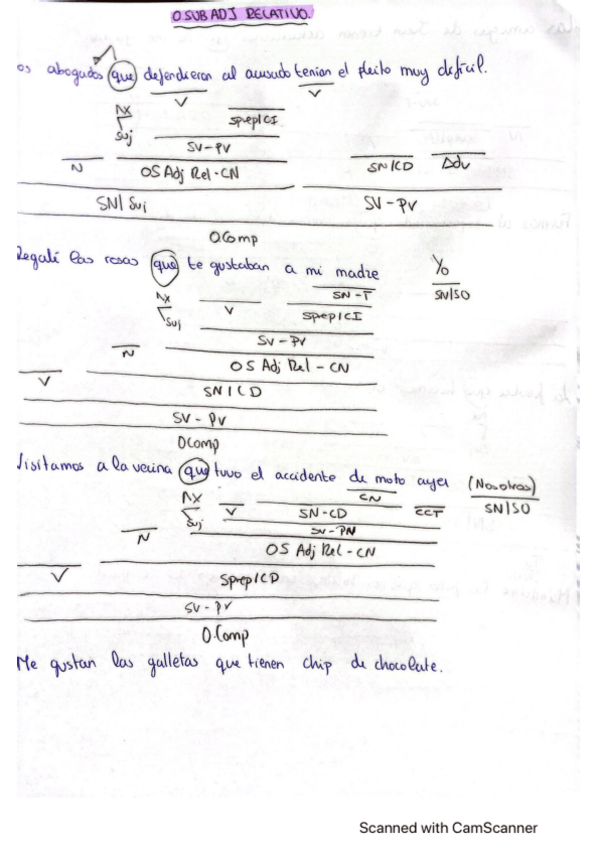 O SUB ADJ RELATIVO.
os abogados que defendieron al acusado tenían el pleito muy difícil.
V V
NX Sprep/CI
Suj SV-PV
N OS Adj Rel-CN SN/CD Adv
SN/Suj SV-PV
O.Comp
Regalé las rosas que te gustaban a mi madre Yo
NX V SN-T SN/SO
Suj Sprep/CI
SV-PV
N OS Adj Rel-CN
V SN/CD
SV-PV
OComp
Visitamos a la vecina que tuvo el accidente de moto ayer (Nosotros)
NX V SN-CD CN CCT SN/SO
Suj SV-PN
N OS Adj Rel-CN
V Sprep/CD
SV-PV
O.Comp
Me gustan las galletas que tienen chip de chocolate.
Scanned with CamScanner